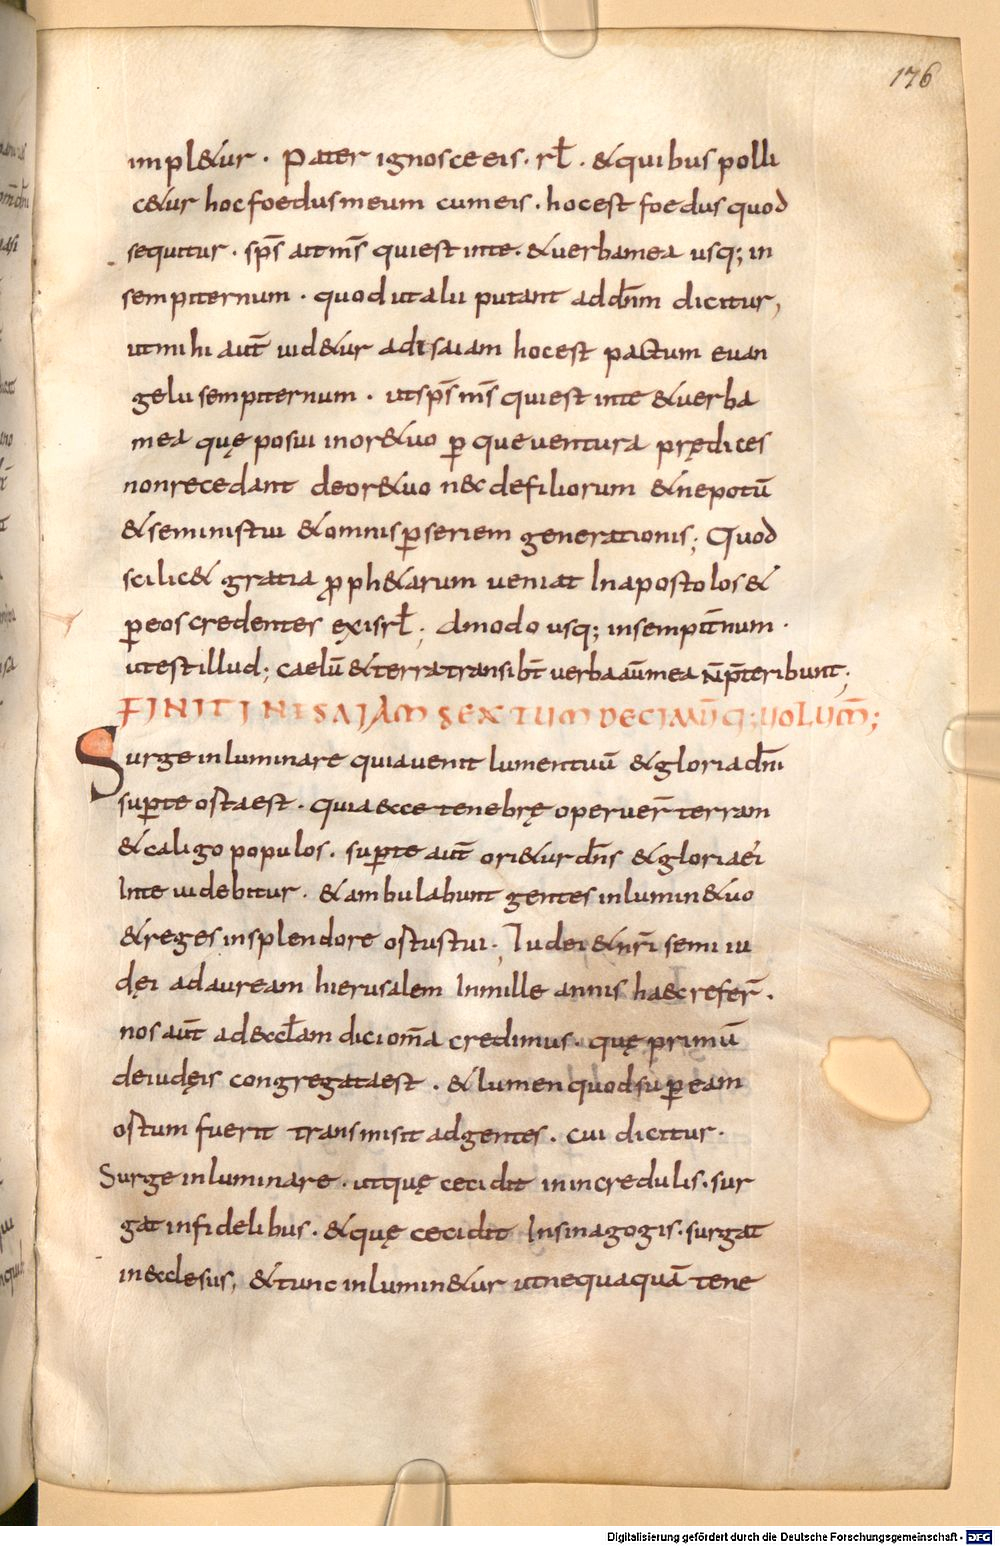 176
impl&ur · Pater ignosce eis · rł . & quibus polli
c&ur hoc foedus meum cum eis · hoc est foedus quod
sequitur · sp̄s aut m̄s qui est in te · & verba mea usq; in
sempiternum · quod ut alii putant ad dn̄m dicitur,
ut mihi aut̄ uid&ur ad isaiam hoc est pactum euan
gelii sempiternum · ut sp̄s m̄s qui est in te & uerba
mea quę posui in or&uo ꝑ que ventura prędices
non recedant de or&uo n&c de filiorum & nepotū
& seminis tui & omnis ꝑ seriem generationis; Quod
scilic& gratia ꝓph&arum veniat In apostolos &
ꝑ eos credentes ex isrł; Amodo usq; in sempit̄num ·
ut est illud; caelū & terra transibt̄ verba aūmea n̄ p̄teribunt;
FINIT IN ESAIAM SEXTUM DECIMŪQ; UOLUM̄;
Surge inluminare quia venit lumen tuū & gloria dn̄i
suꝑ te osta est · quia ecce tenebrę operuer̄ terram
& caligo populos . suꝑ te aut̄ ori&ur dn̄s & gloria ei
In te uidebitur · & ambulabunt gentes in lumin&uo
& reges in splendore ostus tui · Iudei & nr̄i semi iu
dęi ad auream hierusalem In mille annis haec refer̄ ·
nos aut̄ ad eccl̄am dici om̄a credimus · quę primū
de iudęis congregata est · & lumen quod suꝑ eam
ostum fuerit transmisit ad gentes . cui dicitur ·
Surge inluminare · ut quę cecidit in incredulis · sur
gat in fidelibus . & quę cecidit In sinagogis · surgat
in ecclesiis, & tunc inlumin&ur ut nequaquā tene
Digitalisierung gefördert durch die Deutsche Forschungsgemeinschaft - DFG